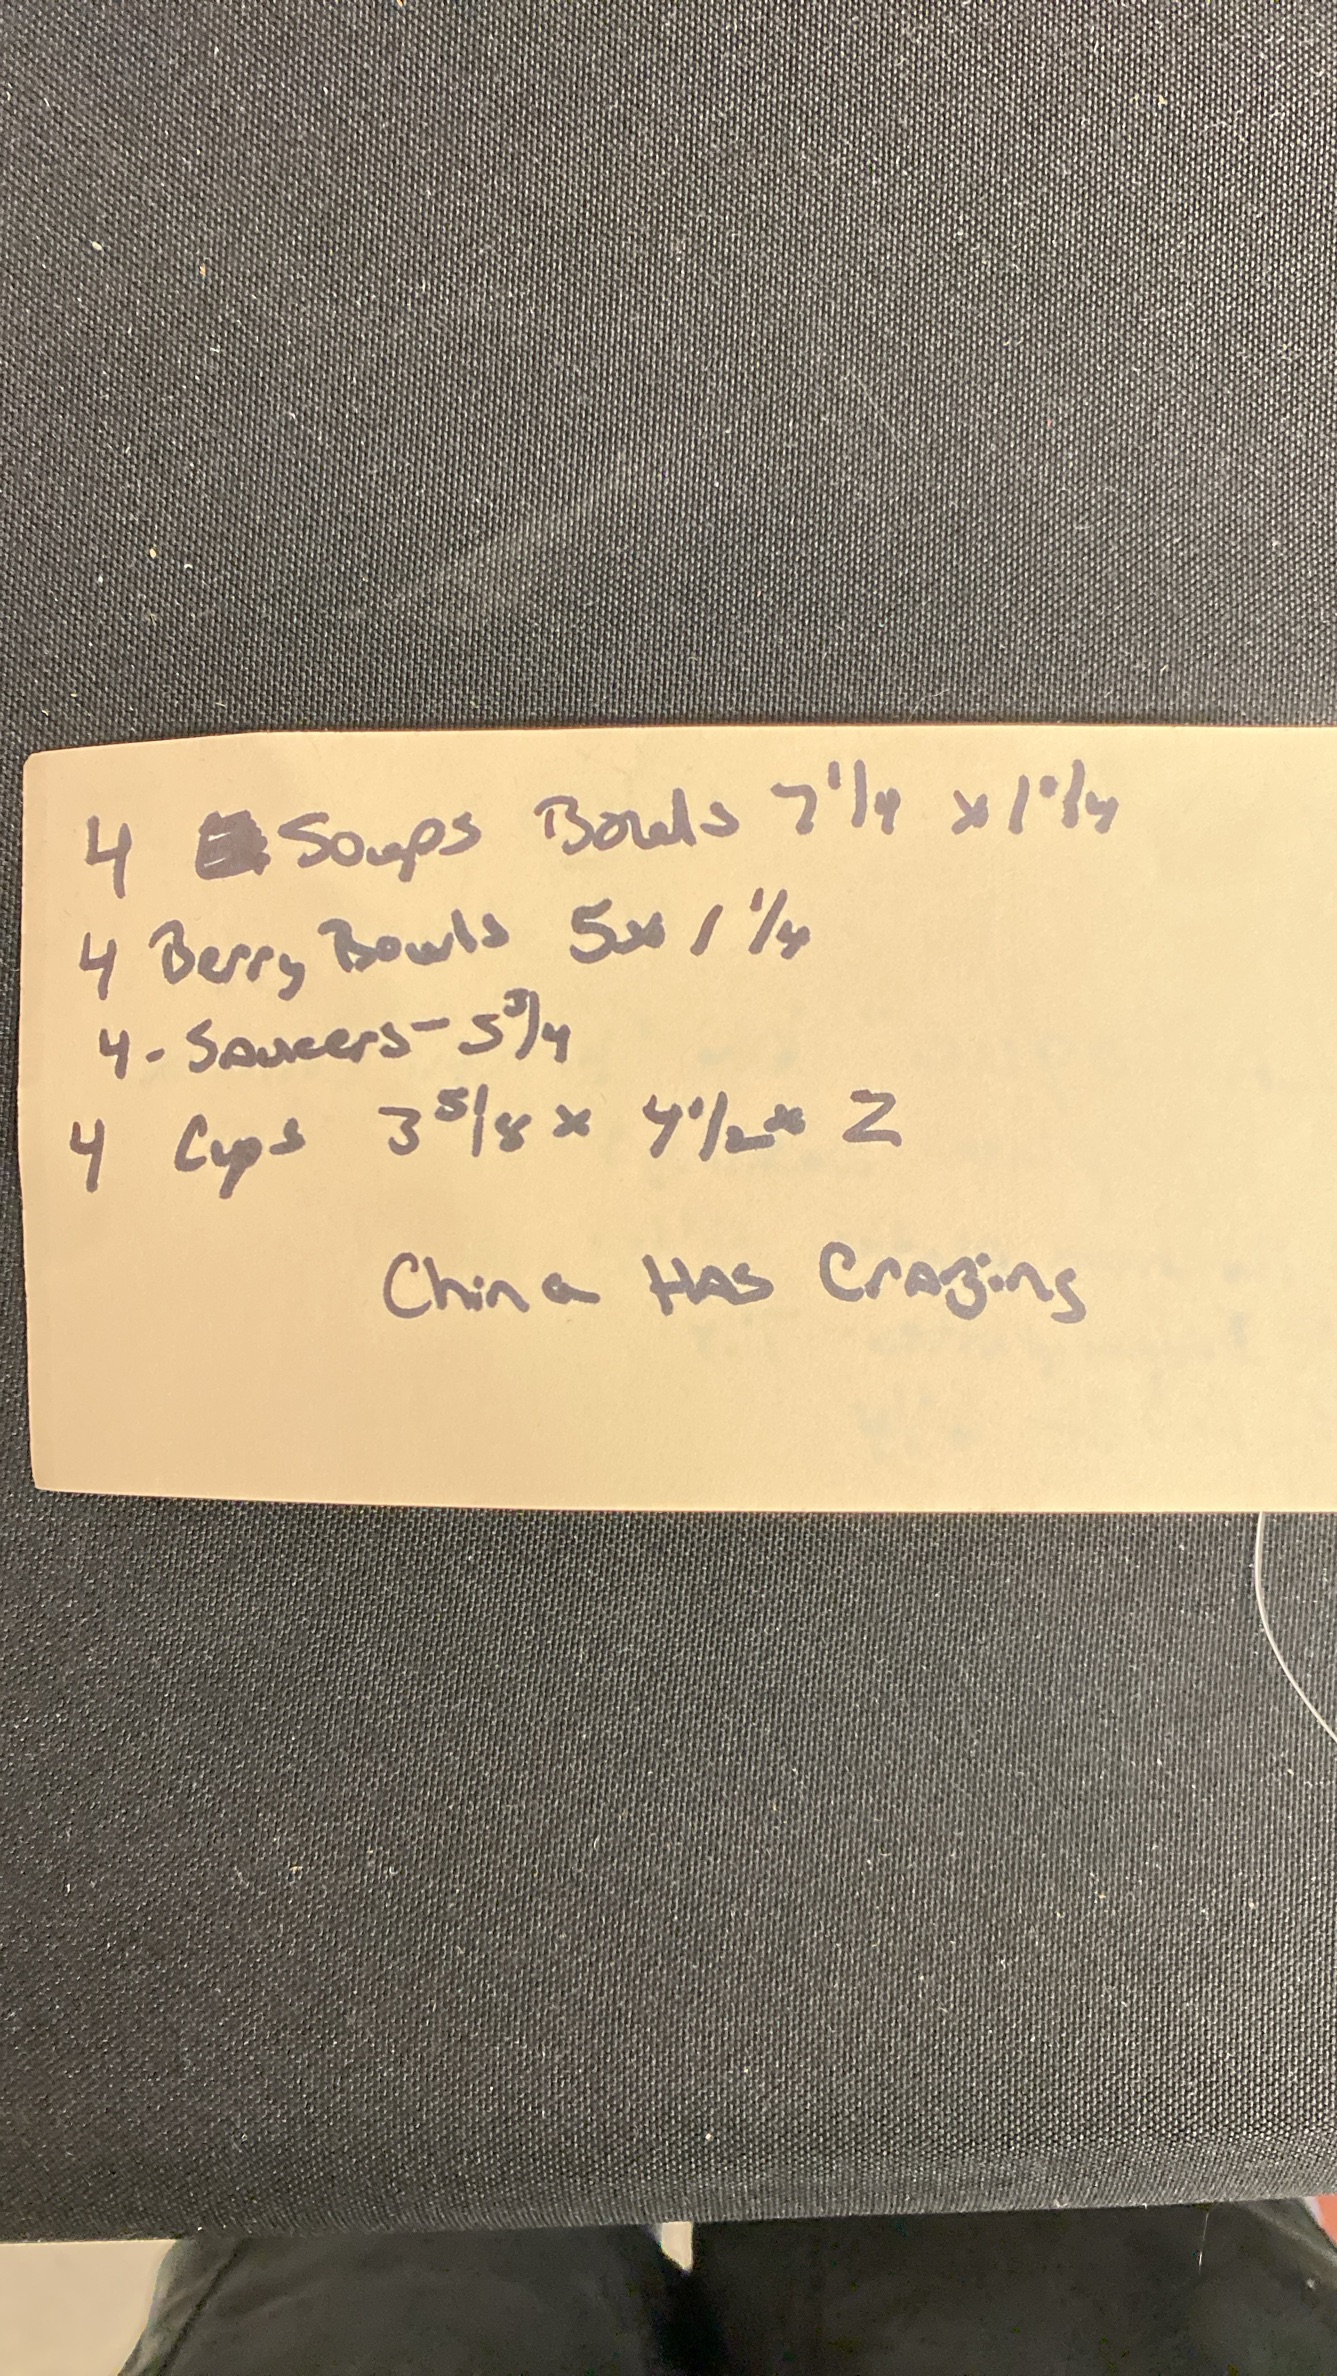 4 Soups Bowls 7 1/4 x 1 1/4
4 Berry Bowls 5x 1 1/4
4 - Saucers - 5 3/4
4 Cups 3 5/8 x 4 1/2 x 2
China Has Crazing